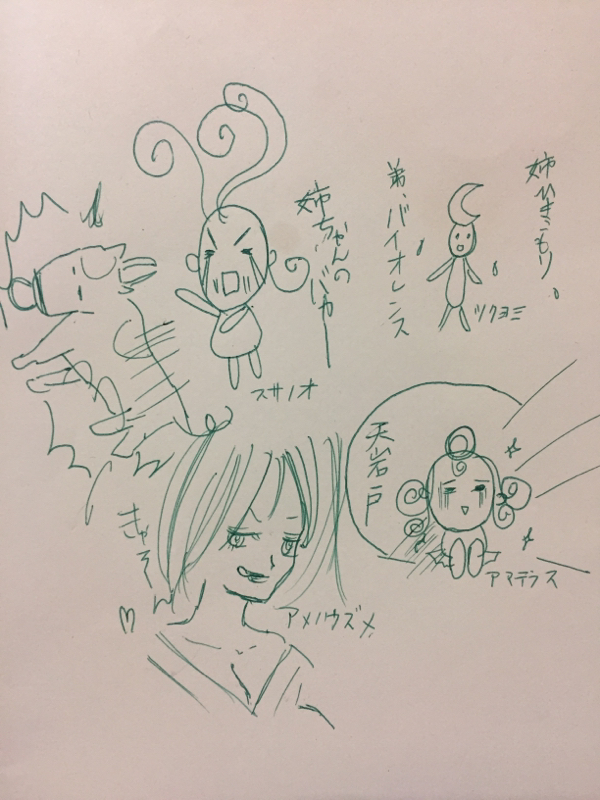 姉ひきこもり。
弟、バイオレンス
ツクヨミ
姉ちゃんの
バカーー
スサノオ
天岩戸
アマテラス
きゃそーん
アメノウズメ